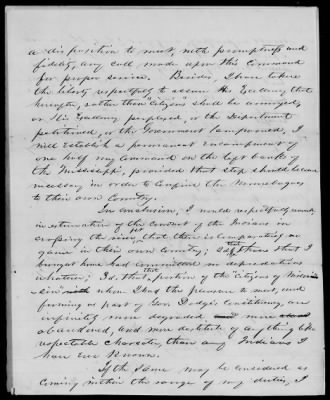 a disposition to meet, with promptness and
fidelity, any call made upon this Command
for proper service. Besides, I have taken
the liberty respectfully to assure His Excellency that
hereafter, rather than "Citizens" shall be annoyed,
or His Excellency perplexed, or the Department
petitioned, or the Government lampooned, I
will establish a permanent encampment of
one half my command on the left bank of
the Mississippi, provided that step should become
necessary in order to confine the Winnebagoes
to their own Country.
In conclusion, I would respectfully remark,
in extenuation of the conduct of the Indians in
crossing the river, 1st that there is comparatively no
game in their own Country; 2d that those that I
brought home had committed no depredations
whatever; 3d. that that portion of the "Citizens of Wiscon-
-sin" whom I had the pleasure to meet, and
forming a part of Gov. Dodge's Constituency, are
infinitely more degraded and more
abandoned, and more destitute of anything like
respectable character, than any Indians I
have ever known.
If the same may be considered as
coming within the range of my duties, I